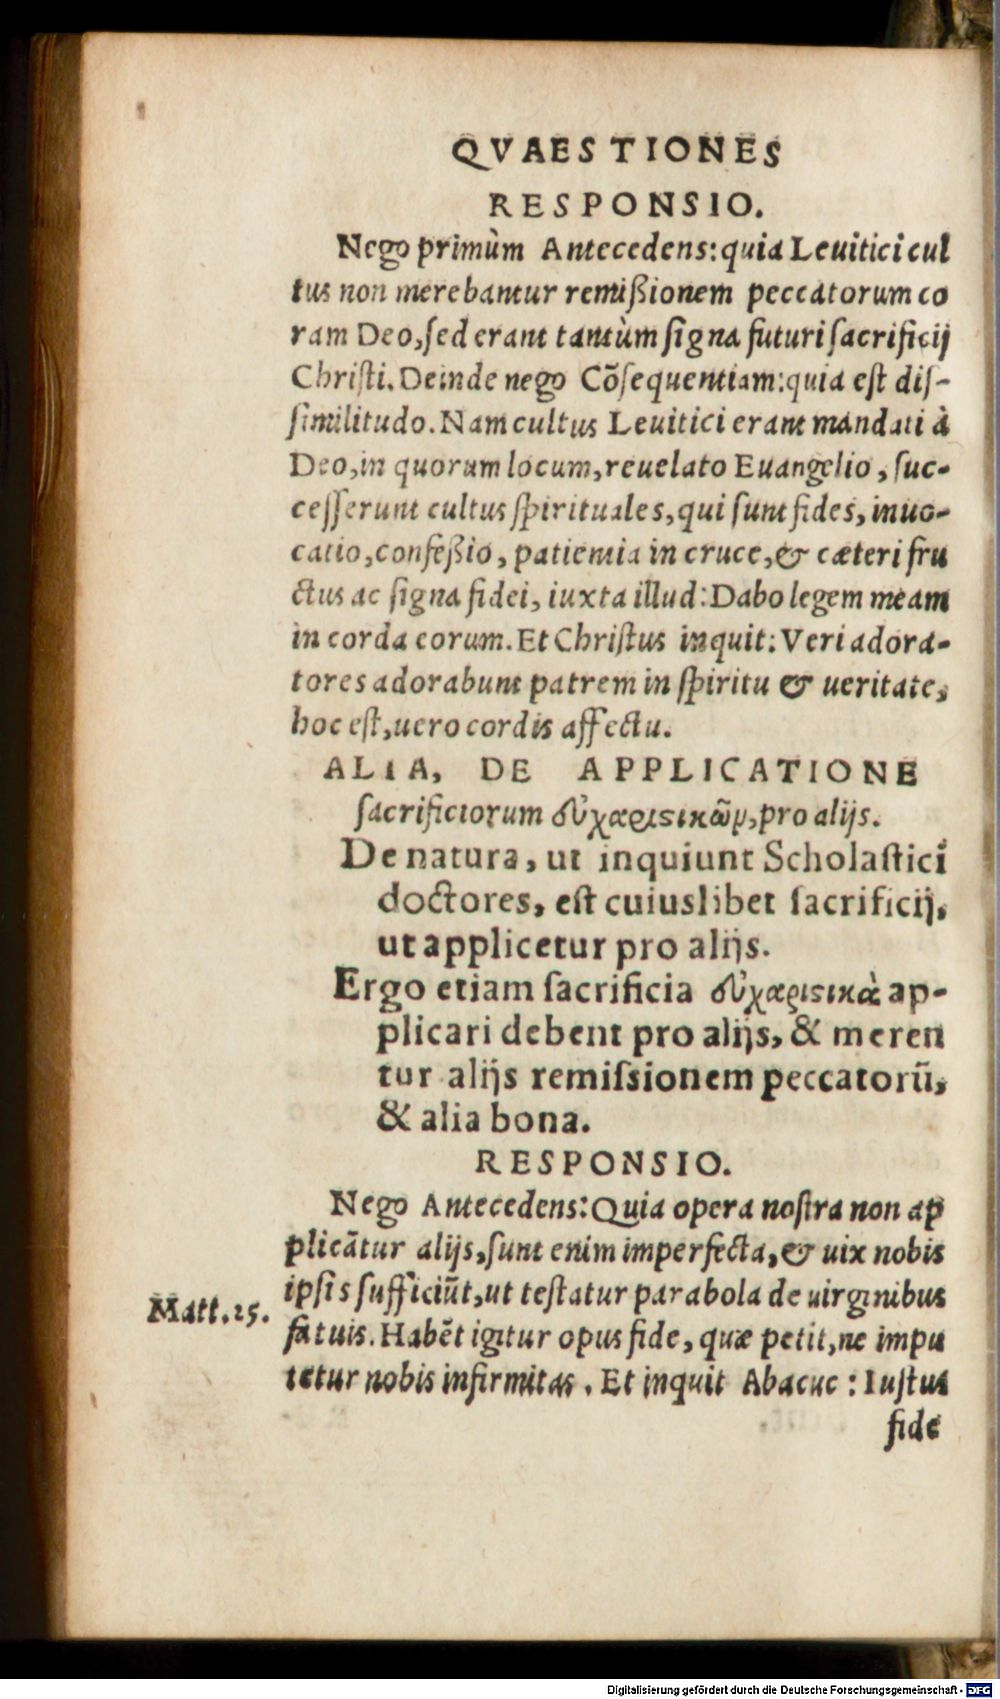 QVAESTIONES
RESPONSIO.
Nego primùm Antecedens: quia Leuitici cul
tus non merebantur remißionem peccatorum co
ram Deo, ſed erant tantùm ſigna futuri ſacrificij
Chriſti. Deinde nego Cõſequentiam: quia eſt diſ-
ſimilitudo. Nam cultus Leuitici erant mandati à
Deo, in quorum locum, reuelato Euangelio, ſuc-
ceſſerunt cultus ſpirituales, qui ſunt fides, inuo-
catio, confeßio, patientia in cruce, & cæteri fru
ctus ac ſigna fidei, iuxta illud: Dabo legem meam
in corda eorum. Et Chriſtus inquit: Veri adora-
tores adorabunt patrem in ſpiritu & ueritate,
hoc eſt, uero cordis affectu.
ALIA, DE APPLICATIONE
ſacrificiorum εὐχαριστικῶν, pro alijs.
De natura, ut inquiunt Scholaſtici
doctores, eſt cuiuslibet ſacrificij,
ut applicetur pro alijs.
Ergo etiam ſacrificia εὐχαριστικὰ ap-
plicari debent pro alijs, & meren
tur alijs remiſsionem peccatorũ,
& alia bona.
RESPONSIO.
Nego Antecedens: Quia opera noſtra non ap
plicãtur alijs, ſunt enim imperfecta, & uix nobis
ipſis ſufficiũt, ut teſtatur parabola de uirginibus
Matt. 25.
fatuis. Habẽt igitur opus fide, quæ petit, ne impu
tetur nobis infirmitas. Et inquit Abacuc: Iuſtus
fide
Digitalisierung gefördert durch die Deutsche Forschungsgemeinschaft - DFG